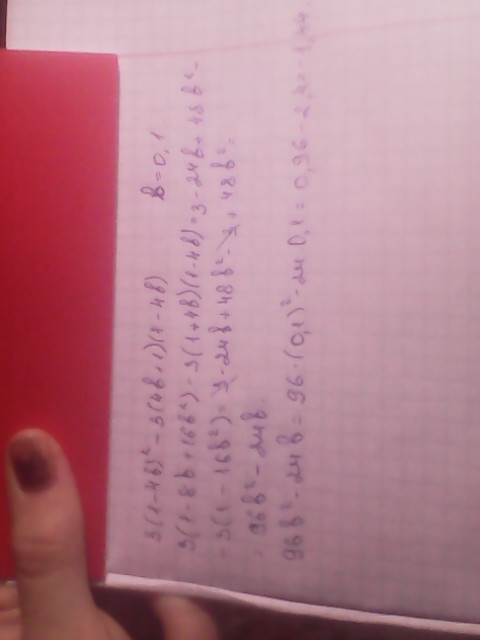 3(1-4b)² - 3(4b+1)(1-4b) b=0,1
3(1-8b+16b²) - 3(1+4b)(1-4b) = 3-24b+48b² -
-3(1-16b²) = 3-24b+48b²-3+48b² =
= 96b²-24b
96b²-24b = 96·(0,1)²-24·0,1 = 0,96-2,4 = -1,44.